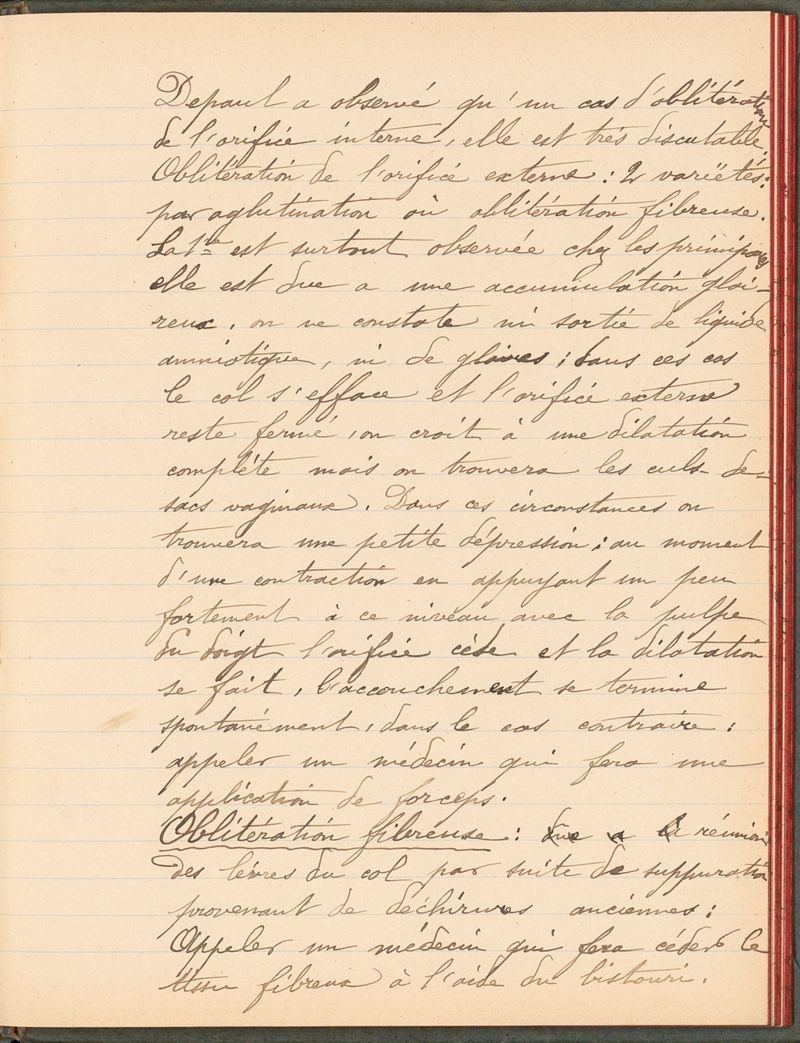 Depaul a observé qu'un cas d'oblitération
de l'orifice interne, elle est très discutable.
Oblitération de l'orifice externe : 2 variétés :
par aglutination où oblitération fibreuse.
La 1re est surtout observée chez les primipares
elle est due a une accumulation glai-
reux, on ne constate ni sortie de liquide
amniotique, ni de glaires ; dans ces cas
le col s'efface et l'orifice externe
reste fermé, on croit à une dilatation
complète mais on trouvera les culs-de-
sacs vaginaux. Dans ces circonstances on
trouvera une petite dépression ; au moment
d'une contraction en appuyant un peu
fortement à ce niveau avec la pulpe
du doigt l'orifice cède et la dilatation
se fait, l'accouchement se termine
spontanément, dans le cas contraire :
appeler un médecin qui fera une
application de forceps.
Oblitération fibreuse : due a la réunion
des lèvres du col par suite de suppuration
provenant de déchirures anciennes :
Appeler un médecin qui fera céder le
tissu fibreux à l'aide du bistouri.